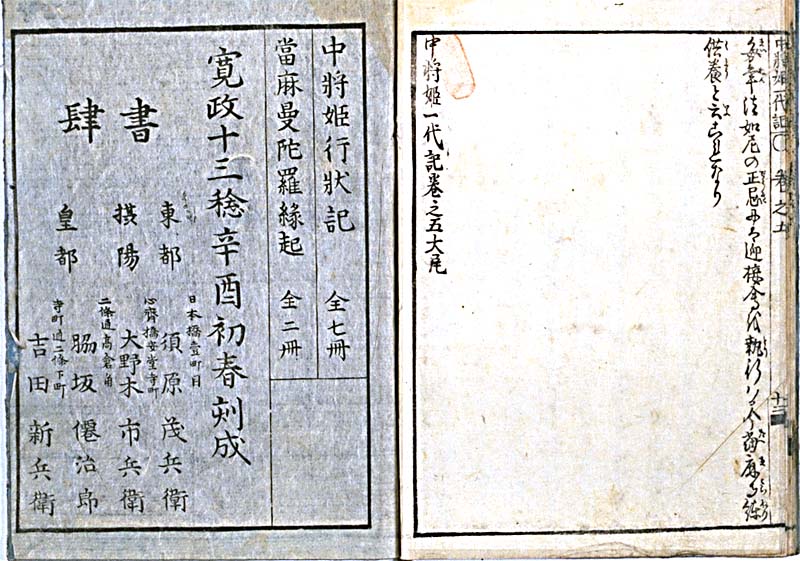 中將姫一代記 巻之五
十三
供養と云こ
中將姫一代記巻之五大尾
中將姫行狀記 全七冊
當麻曼陀羅縁起 全二冊
寛政十三稔辛酉初春刻成
書肆
東都 日本橋壹町目 須原茂兵衛
摂陽 心齋橋安堂寺町 大野木市兵衛
皇都 二條通高倉角 脇坂僊治郎
寺町通二條下町 吉田新兵衛